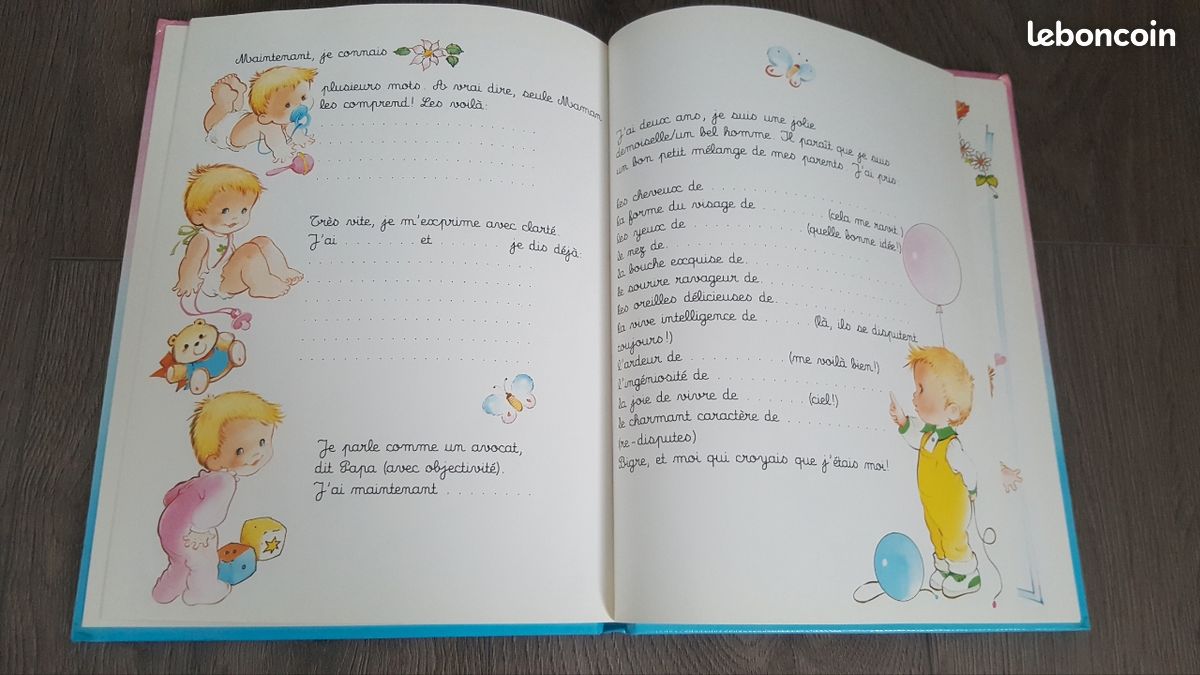 leboncoin
Maintenant, je connais
plusieurs mots. A vrai dire, seule Maman
les comprend! Les voilà:
Très vite, je m'exprime avec clarté.
J'ai . . . . . . . . . . et je dis déjà:
Je parle comme un avocat,
dit Papa (avec objectivité).
J'ai maintenant . . . . . . . . . .
J'ai deux ans, je suis une jolie
demoiselle/un bel homme. Il paraît que je suis
un bon petit mélange de mes parents. J'ai pris:
les cheveux de . . . . . . . . . .
la forme du visage de . . . . . . . . . . (cela me ravit.)
les yeux de . . . . . . . . . . (quelle bonne idée!)
le nez de. . . . . . . . . .
la bouche exquise de. . . . . . . . . .
le sourire ravageur de. . . . . . . . . .
les oreilles délicieuses de. . . . . . . . . .
la vive intelligence de . . . . . . (là, ils se disputent
toujours!)
l'ardeur de . . . . . . . . . . (me voilà bien!)
l'ingéniosité de . . . . . . . . . .
la joie de vivre de . . . . . . . (ciel!)
le charmant caractère de . . . . . . . . . .
(re-disputes)
Bigre, et moi qui croyais que j'étais moi!